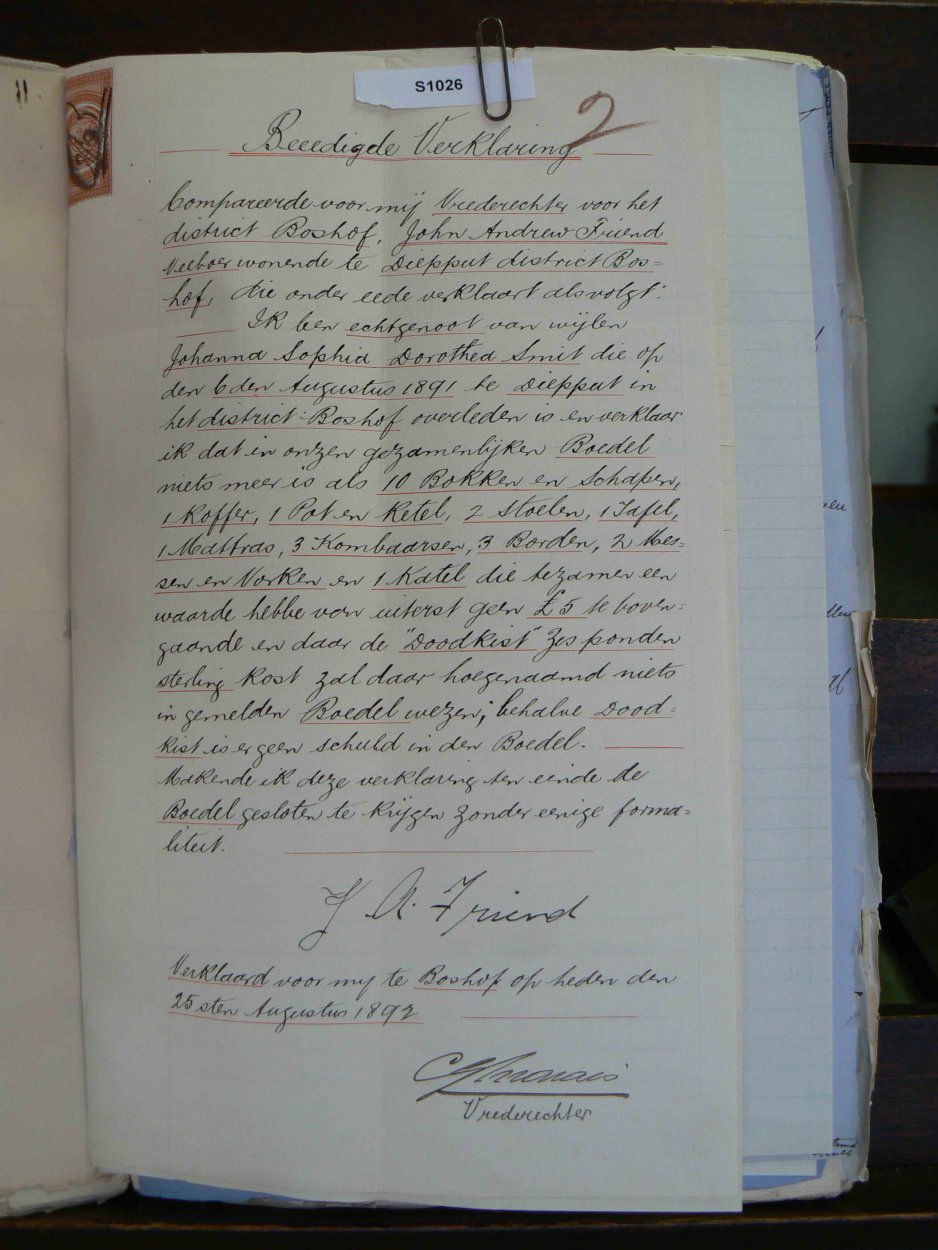 S1026
2
Beeedigde Verklaring
Compareerde voor mij Vrederechter voor het
district Boshof, John Andrew Friend
Veeboer wonende te Diepput district Bos=
hof, die onder eede verklaart als volgt:
Ik ben echtgenoot van wijlen
Johanna Sophia Dorothea Smit die op
den 6den Augustus 1891 te Diepput in
het district Boshof overleden is en verklaar
ik dat in onzen gezamenlijken Boedel
niets meer is als 10 Bokken en Schapen,
1 Koffer, 1 Pot en Ketel, 2 Stoelen, 1 Tafel,
1 Mattras, 3 Kombaarsen, 3 Borden, 2 Mes=
sen en Vorken en 1 Katel die tezamen een
waarde hebbe van uiterst geen £5 te boven=
gaande en daar de "Doodkist" Zes ponden
sterling kost zal daar hoegenaamd niets
in gemelden Boedel wezen; behalve Dood=
kist is er geen schuld in den Boedel.
Makende ik deze verklaring ten einde de
Boedel gesloten te krijgen zonder eenige forma=
liteit.
J A. Friend
Verklaard voor my te Boshof op heden den
25sten Augustus 1892
Vrederechter